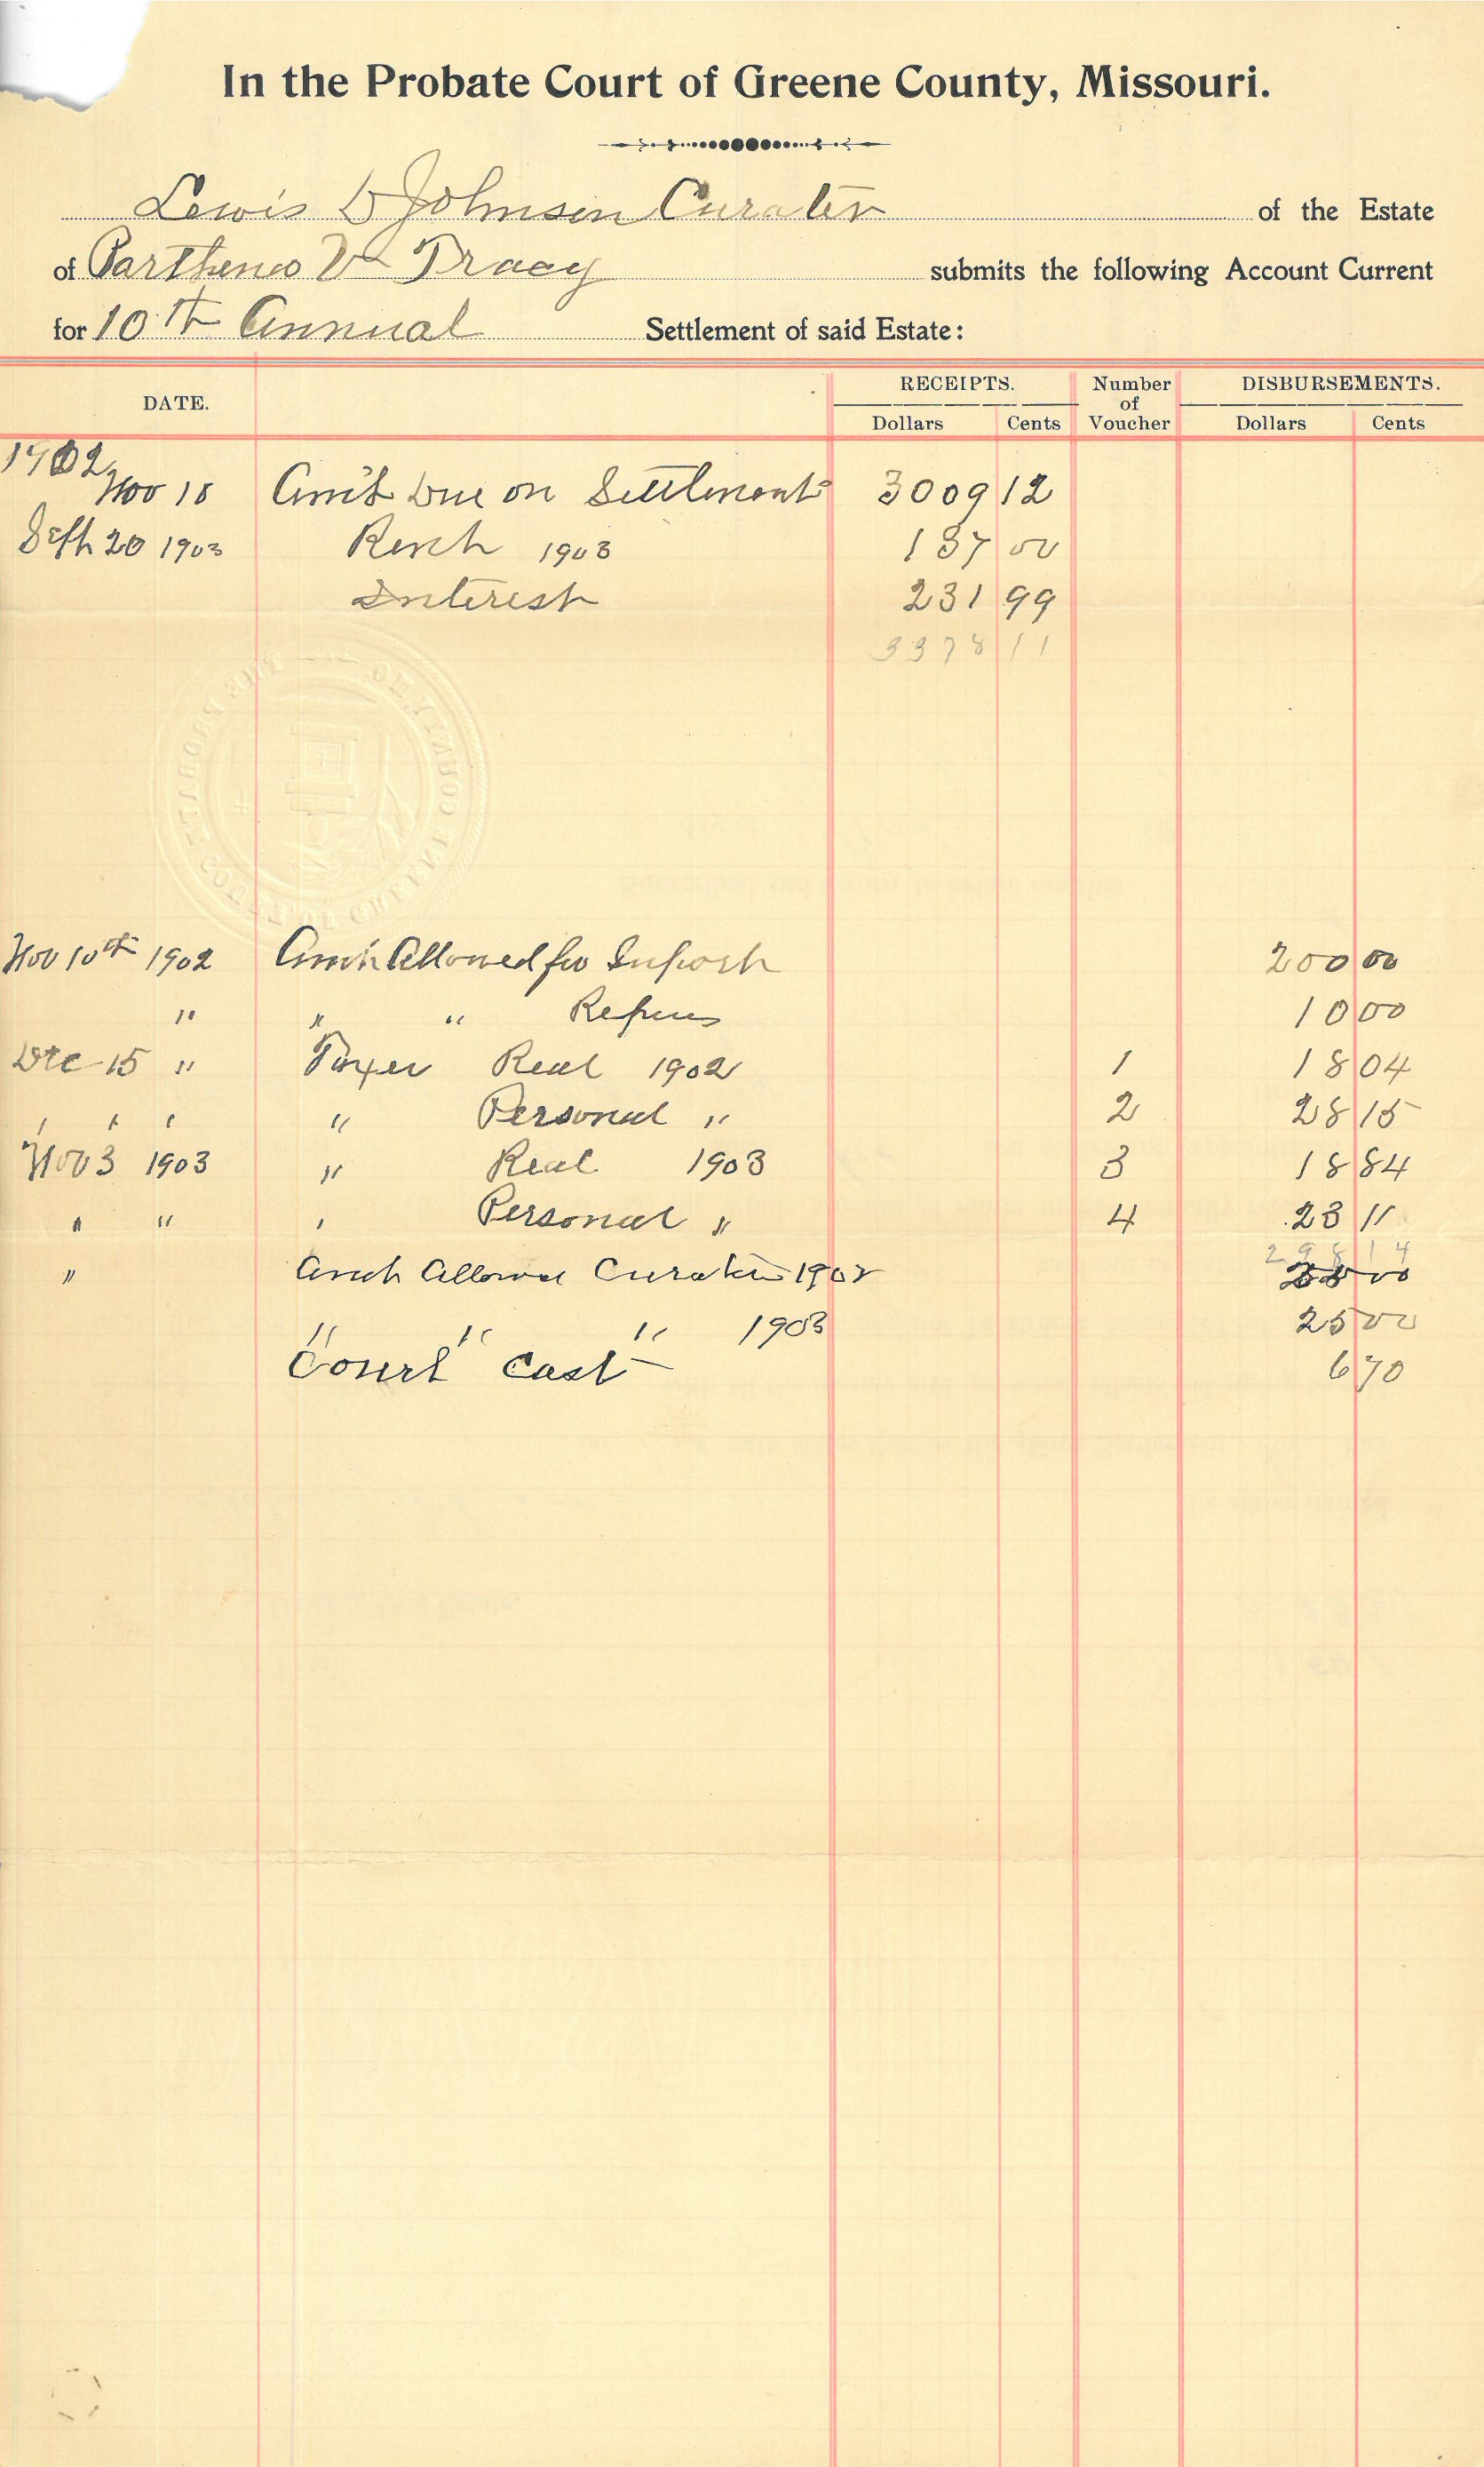 In the Probate Court of Greene County, Missouri.
Lewis D Johnson Curator of the Estate
of Parthenia V Tracy submits the following Account Current
for 10th Annual Settlement of said Estate:
DATE. RECEIPTS. Number of Voucher DISBURSEMENTS.
Dollars Cents Dollars Cents
1902
Nov 10 Am't Due on Settlement 3009 12
Sept 20 1903 Rent 1903 137 00
Interest 231 99
3378 11
THE PROBATE COURT OF GREENE COUNTY, MO
Nov 10th 1902 Am't Allowed for Suport 200 00
" " " Repairs 10 00
Dec 15 " Taxes Real 1902 1 18 04
" " " " Personal " 2 28 15
Nov 3 1903 " Real 1903 3 18 84
" " " Personal " 4 23 11
298 14
" Amt Allowed Curator 1902 00
" " " 1903 25 00
Court Cost 6 70